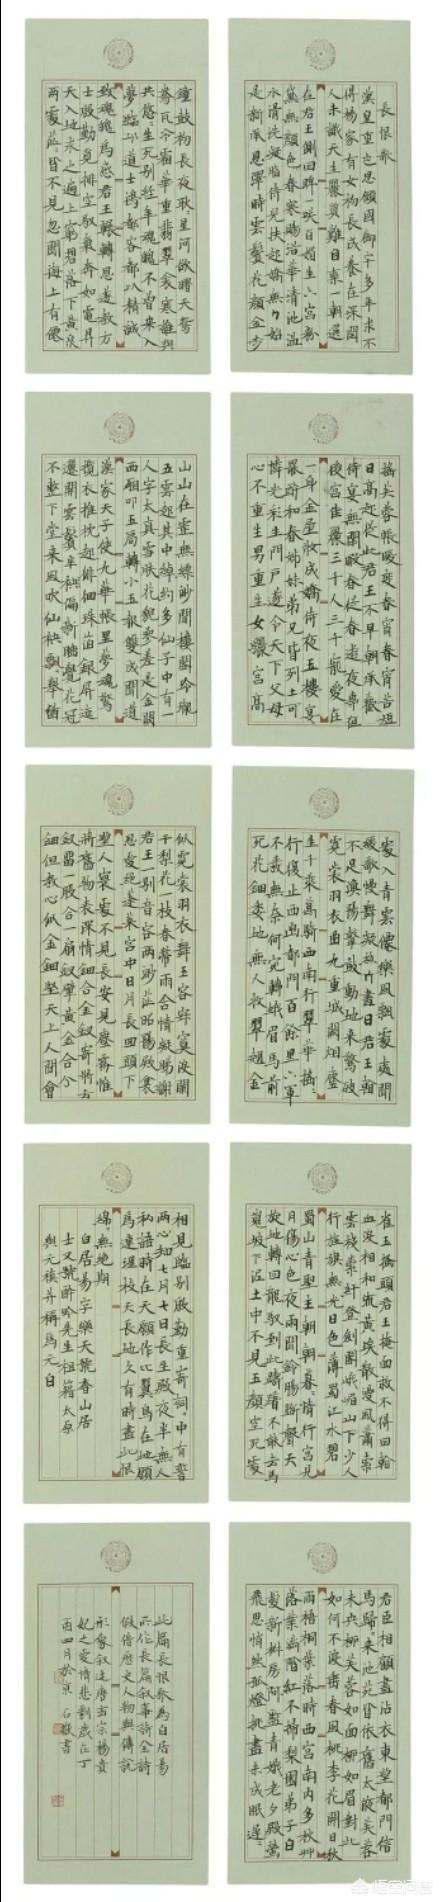 長恨歌
漢皇重色思傾國御宇多年求不
得楊家有女初長成養在深閨
人未識天生麗質難自棄一朝選
在君王側回眸一笑百媚生六宮粉
黛無顏色春寒賜浴華清池溫
水滑洗凝脂侍兒扶起嬌無力始
是新承恩澤時雲鬢花顏金步
搖芙蓉帳暖度春宵春宵苦短
日高起從此君王不早朝承歡
侍宴無閒暇春從春遊夜專夜
後宮佳麗三千人三千寵愛在
一身金屋妝成嬌侍夜玉樓宴
罷醉和春姊妹弟兄皆列土可
憐光彩生門戶遂令天下父母
心不重生男重生女驪宮高
處入青雲僊樂風飄處處聞
緩歌慢舞凝絲竹盡日君王看
不足漁陽鼙鼓動地來驚破
霓裳羽衣曲九重城闕烟塵
生千乘萬騎西南行翠華搖搖
行復止西出都門百餘里六軍
不發無奈何宛轉蛾眉馬前
死花鈿委地無人收翠翹金
雀玉搔頭君王掩面救不得回看
血淚相和流黃埃散漫風蕭索
雲棧縈紆登劍閣峨嵋山下少人
行旌旗無光日色薄蜀江水碧
蜀山青聖主朝朝暮暮情行宮見
月傷心色夜雨聞鈴腸斷聲天
旋地轉回龍馭到此躊躇不能去馬
嵬坡下泥土中不見玉顏空死處
君臣相顧盡沾衣東望都門信
馬歸歸來池苑皆依舊太液芙蓉
未央柳芙蓉如面柳如眉對此
如何不淚垂春風桃李花開日秋
雨梧桐葉落時西宮南內多秋草
落葉滿階紅不掃梨園弟子白
髮新椒房阿監青娥老夕殿螢
飛思悄然孤燈挑盡未成眠遲遲
鐘鼓初長夜耿耿星河欲曙天鴛
鴦瓦冷霜華重翡翠衾寒誰與
共悠悠生死別經年魂魄不曾來入
夢臨邛道士鴻都客能以精誠
致魂魄為感君王輾轉思遂教方
士殷勤覓排空馭氣奔如電昇
天入地求之遍上窮碧落下黃泉
兩處茫茫皆不見忽聞海上有僊
山山在虛無縹緲間樓閣玲瓏
五雲起其中綽約多仙子中有一
人字太真雪膚花貌參差是金闕
西廂叩玉扃轉小玉報雙成聞道
漢家天子使九華帳裏夢魂驚
攬衣推枕起徘徊珠箔銀屏迤
邐開雲鬢半偏新睡覺花冠
不整下堂來風吹仙袂飄飄舉猶
似霓裳羽衣舞玉容寂寞淚闌
干梨花一枝春帶雨含情凝睇謝
君王一別音容兩渺茫昭陽殿裏
恩愛絕蓬萊宮中日月長回頭下
望人寰處不見長安見塵霧惟
將舊物表深情鈿合金釵寄將去
釵留一股合一扇釵擘黃金合分
鈿但教心似金鈿堅天上人間會
相見臨別殷勤重寄詞詞中有誓
兩心知七月七日長生殿夜半無人
私語時在天願作比翼鳥在地願
為連理枝天長地久有時盡此恨
綿綿無絕期
白居易字樂天號香山居
士又號醉吟先生祖籍太原
與元稹并稱為元白
此篇長恨歌為白居易
所作長篇敘事詩全詩
假借歷史人物與傳說
形象敘述唐玄宗楊貴
妃之愛情悲劇歲在丁
酉四月於京